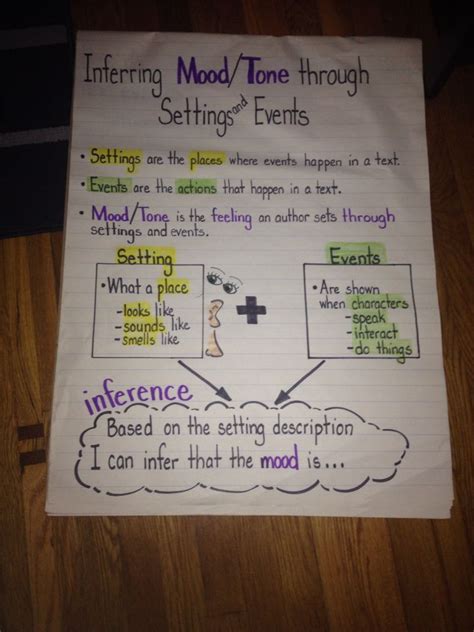 Inferring Mood/Tone through
Settings and Events
• Settings are the places where events happen in a text.
• Events are the actions that happen in a text.
• Mood/Tone is the feeling an author sets through
settings and events.
Setting
• What a place
- looks like
- sounds like
- smells like
+
Events
• Are shown
when characters
- speak
- interact
- do things
inference
Based on the setting description
I can infer that the mood is...